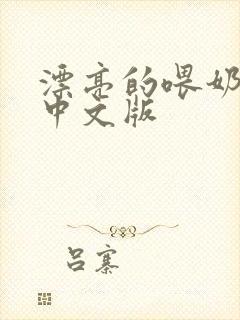 漂亮的喂奶
中文版
吕寨